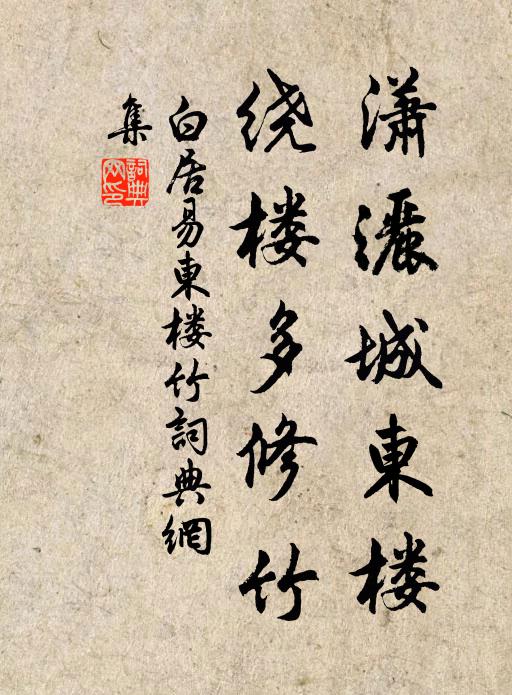 潇灑城東楼
绕楼多修竹
白居易東楼竹詞典網
集
詞典網印